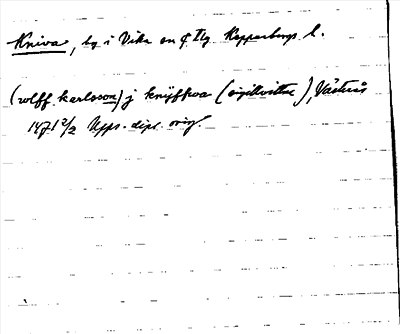 Kniva, by i Vika sn o. tlg Kopparbergs l.
(wlff karlsson) j knijffwa (sigillvittne), Västerås
1471 2/2 Upps. dipl. orig.